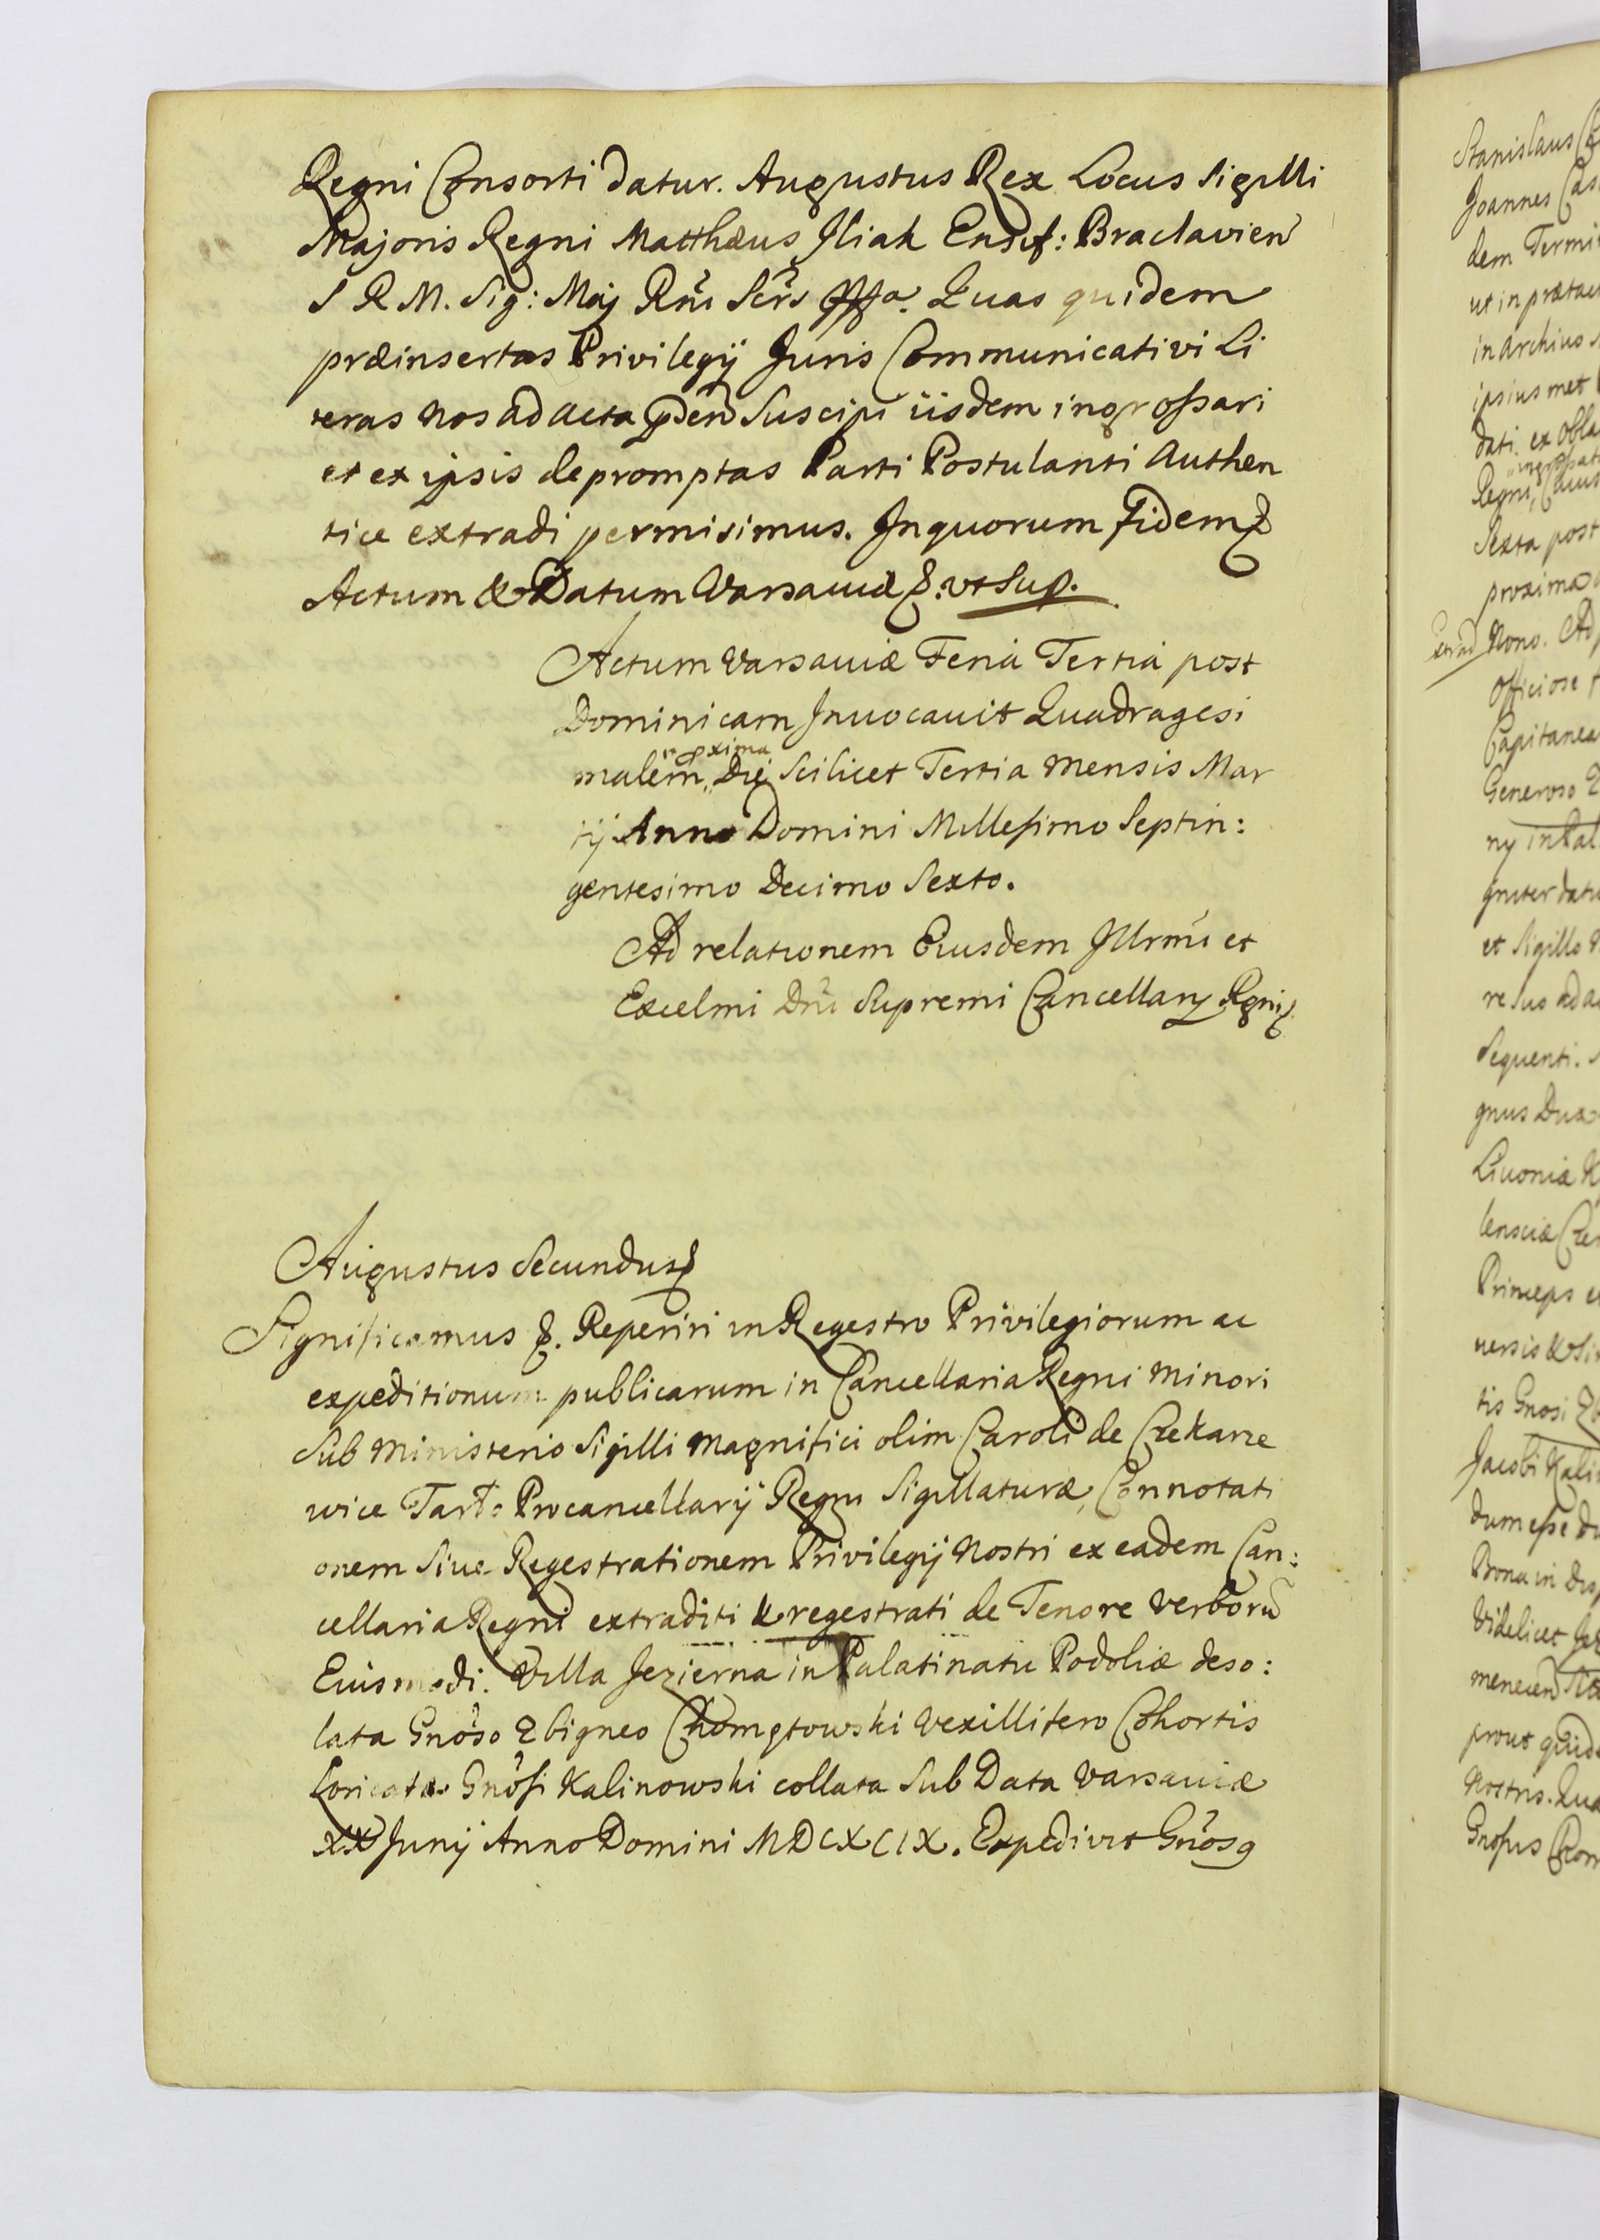 Regni Consorti datur. Augustus Rex Locus Sigilli
Majoris Regni Matthæus Iliak Ensif: Braclavien
S R M. Sig: Maj Rni Scrs Quas quidem
præinsertas Privilegij Juris Communicativi Li
teras Nos ad acta pñden Suscipi iisdem ingrossari
et ex ipsis depromptas Parti Postulanti Authen
tice extradi permisimus. In quorum fidem &
Actum & Datum Varsaviæ &. ut Sup.
Actum Varsaviæ Feriâ Tertiâ post
Dominicam Invocavit Quadragesi
proxima
malem, Die Scilicet Tertia Mensis Mar
tij Anno Domini Millesimo Septin:
gentesimo Decimo Sexto.
Ad relationem Eiusdem Illrmi et
Excelmi Dni Supremi Cancellarij Regni &.
Augustus Secundus &
Significamus &. Reperiri in Regestro Privilegiorum ac
expeditionum publicarum in Cancellaria Regni Minori
Sub Ministerio Sigilli Magnifici olim Caroli de Czekarze
wice Tarło Procancellarij Regni Sigillaturæ, Connotati
onem Sive Regestrationem Privilegij Nostri ex eadem Can:
cellaria Regni extraditi & regestrati de Tenore Verborũ
Eiusmodi. Villa Jezierna in Palatinatu Podoliæ deso:
lata Gnoso Zbigneo Chomętowski Vexillifero Cohortis
Loricatæ Gnosi Kalinowski collata Sub Data Varsaviæ
XX Junij Anno Domini MDCXCIX. Expedivit Gnosg
Stanislaus
Joannes
dem
ipsius met
Regni,
Sexta post
proxima
Nono. Ad
Officiose
Generoso
et Sigillo
Sequenti.
Livoniæ
Princeps
tis Gnosi
Videlicet
prout quid
Nostris.